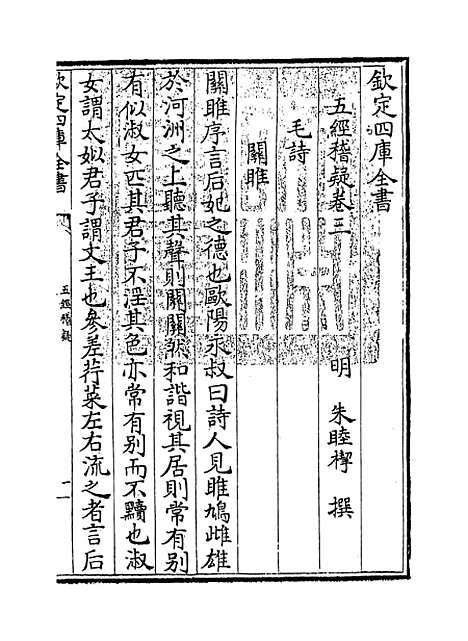 欽定四庫全書
五經稽疑卷三
明 朱睦㮮 撰
毛詩
關雎
關雎序言后妃之德也歐陽永叔曰詩人見雎鳩雌雄
於河洲之上聽其聲則關關然和諧視其居則常有别
有似淑女匹其君子不淫其色亦常有别而不黷也淑
女謂太姒君子謂文王也參差荇菜左右流之者言后
欽定四庫全書
五經稽疑